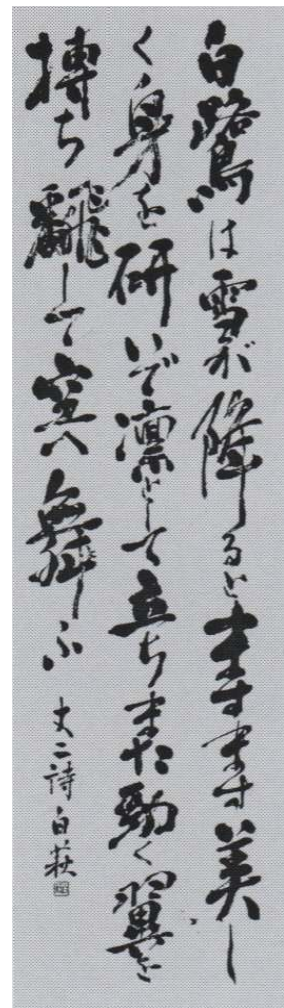 白鷺は雪が降るとますます美し
く身を研いで凛として立ちまた勁く翼を
搏ち飜して穹へ舞ふ
丈二詩 白萩